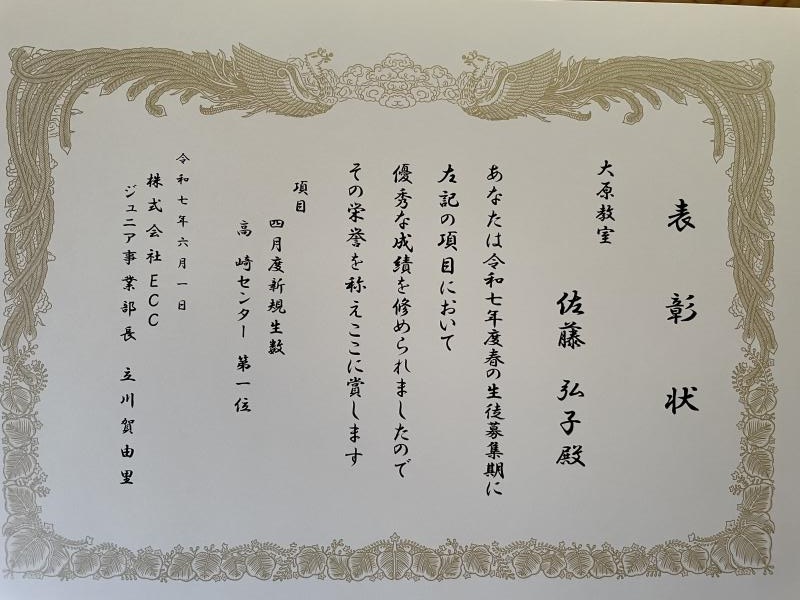 表彰状
大原教室
佐藤 弘子殿
あなたは令和七年度春の生徒募集期に
左記の項目において
優秀な成績を修められましたので
その栄誉を称えここに賞します
項目
四月度新規生数
高崎センター 第一位
令和七年六月一日
株式会社ECC
ジュニア事業部長 立川賀由里